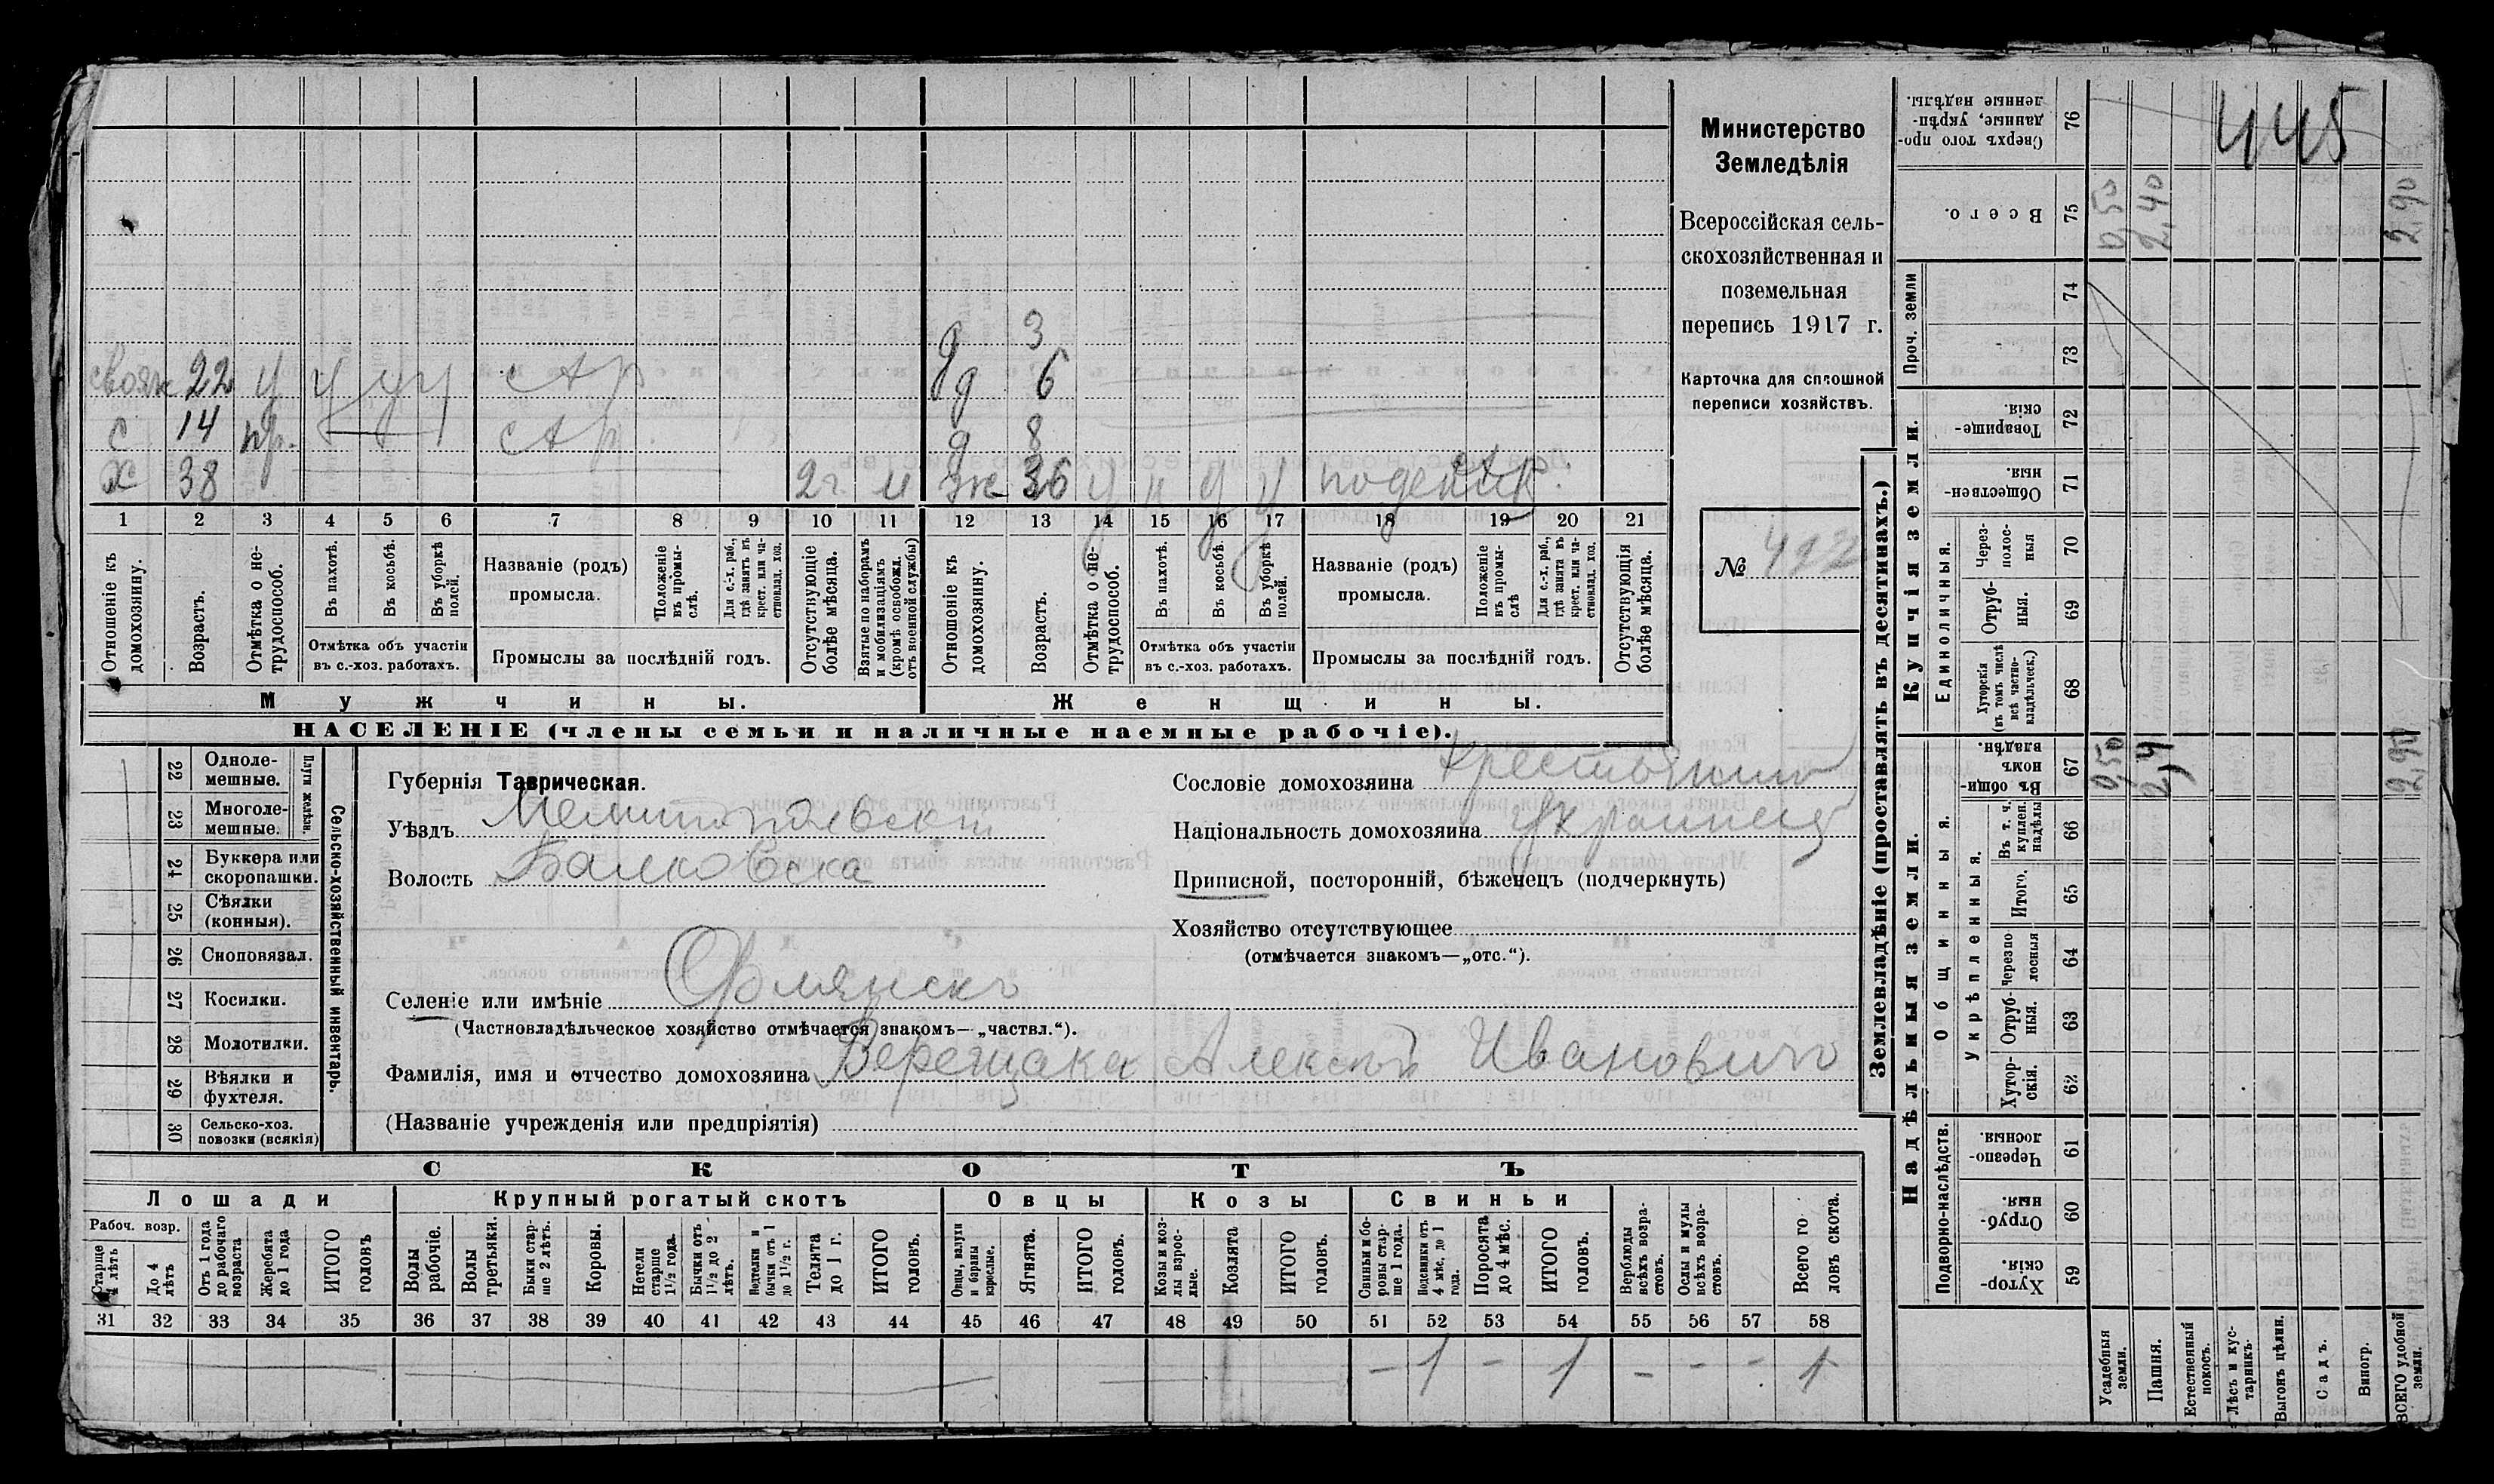 445
Министерство
Земледѣлія
Всероссійская сель-
скохозяйственная и
поземельная
перепись 1917 г.
Карточка для сплошной
переписи хозяйствъ.
№ 422
д 3
свояк 22 у у у у с Ар д 6
с 14 пр. с Ар. д 8
х 38 2 г. м ж 36 у у у поденщ.
1 2 3 4 5 6 7 8 9 10 11 12 13 14 15 16 17 18 19 20 21
Отношеніе къ домохозяину.
Возрастъ.
Отмѣтка о не-трудоспособ.
Въ пахотѣ.
Въ косьбѣ.
Въ уборкѣ полей.
Отмѣтка объ участіи
въ с.-хоз. работахъ.
Названіе (родъ)
промысла.
Положеніе въ промы-слѣ.
Для с.-х. раб., гдѣ занятъ въ крест. или ча-стновлад. хоз.
Промыслы за послѣдній годъ.
Отсутствующіе болѣе мѣсяца.
Взятые по наборамъ и мобилизаціямъ (кромѣ освобожд. отъ военной службы)
Отношеніе къ домохозяину.
Возрастъ.
Отмѣтка о не-трудоспособ.
Въ пахотѣ.
Въ косьбѣ.
Въ уборкѣ полей.
Отмѣтка объ участіи
въ с.-хоз. работахъ.
Названіе (родъ)
промысла.
Положеніе въ промы-слѣ
Для с.-х. раб., гдѣ занята въ крест. или ча-стновлад. хоз.
Промыслы за послѣдній годъ.
Отсутствующія болѣе мѣсяца.
Мужчины. Женщины.
НАСЕЛЕНІЕ (члены семьи и наличные наемные рабочіе).
Сельско-хозяйственный инвентарь.
Плуги желѣзн.
22 Одноле-мешные.
23 Многоле-мешные.
24 Буккера или скоропашки.
25 Сѣялки (конныя).
26 Сноповязал.
27 Косилки.
28 Молотилки.
29 Вѣялки и фухтеля.
30 Сельско-хоз. повозки (всякія)
Губернія Таврическая.
Уѣздъ Мелитопольскій
Волость Балковска
Селеніе или имѣніе Ѳрлянскъ
(Частновладѣльческое хозяйство отмѣчается знакомъ—„частвл.“).
Фамилія, имя и отчество домохозяина Верещака Алексѣй Ивановичъ
(Названіе учрежденія или предпріятія)
Сословіе домохозяина крестьянинъ
Національность домохозяина украинецъ
Приписной, посторонній, бѣженецъ (подчеркнуть)
Хозяйство отсутствующее
(отмѣчается знакомъ—„отс.“).
СКОТЪ
Лошади Крупный рогатый скотъ Овцы Козы Свиньи
Рабоч. возр.
Старше 4 лѣтъ
До 4 лѣтъ
Отъ 1 года до рабочаго возраста
Жеребята до 1 года
ИТОГО головъ
Волы рабочіе.
Волы третьяки.
Быки стар-ше 2 лѣтъ.
Коровы.
Нетели старше 1½ года.
Бычки отъ 1½ до 2 лѣтъ.
Подтелки и бычки отъ 1 до 1½ г.
Телята до 1 г.
ИТОГО головъ.
Овцы, валухи и бараны взрослые.
Ягнята.
ИТОГО головъ.
Козы и коз-лы взрос-лые.
Козлята
ИТОГО головъ.
Свиньи и бо-ровы стар-ше 1 года.
Подсвинки отъ 4 мѣс. до 1 года.
Поросята до 4 мѣс.
ИТОГО головъ.
Верблюды всѣхъ возра-стовъ.
Ослы и мулы всѣхъ возра-стовъ.
Всего го ловъ скота.
31 32 33 34 35 36 37 38 39 40 41 42 43 44 45 46 47 48 49 50 51 52 53 54 55 56 57 58
- 1 - 1 - - - 1
Землевладѣніе (проставлять въ десятинахъ.)
Надѣльныя земли. Купчія земли. Проч. земли
Подворно-наслѣдств.
Общинныя.
Укрѣпленныя.
Единоличныя.
Хутор-скія. 59
Отруб-ныя. 60
Черезпо-лосныя. 61
Хутор-скія. 62
Отруб-ныя. 63
Черезпо лосныя 64
Итого. 65
Въ т. ч. куплен. надѣлы 66
Въ общин-номъ владѣн. 67 0,50 2,4 2,90
Хуторскія (въ томъ числѣ всѣ частно-владѣльческ.) 68
Отруб-ныя. 69
Через-полос-ныя 70
Обществен-ныя. 71
Товарище-скія. 72
73
74
Всего. 75 0,50 2,40 2,90
Сверхъ того про-данные, укрѣп-ленные надѣлы. 76
Усадебныя земли.
Пашня.
Естественный покосъ.
Лѣсъ и кус-тарникъ.
Выгонъ цѣлин.
Садъ.
Виногр.
ВСЕГО удобной земли.